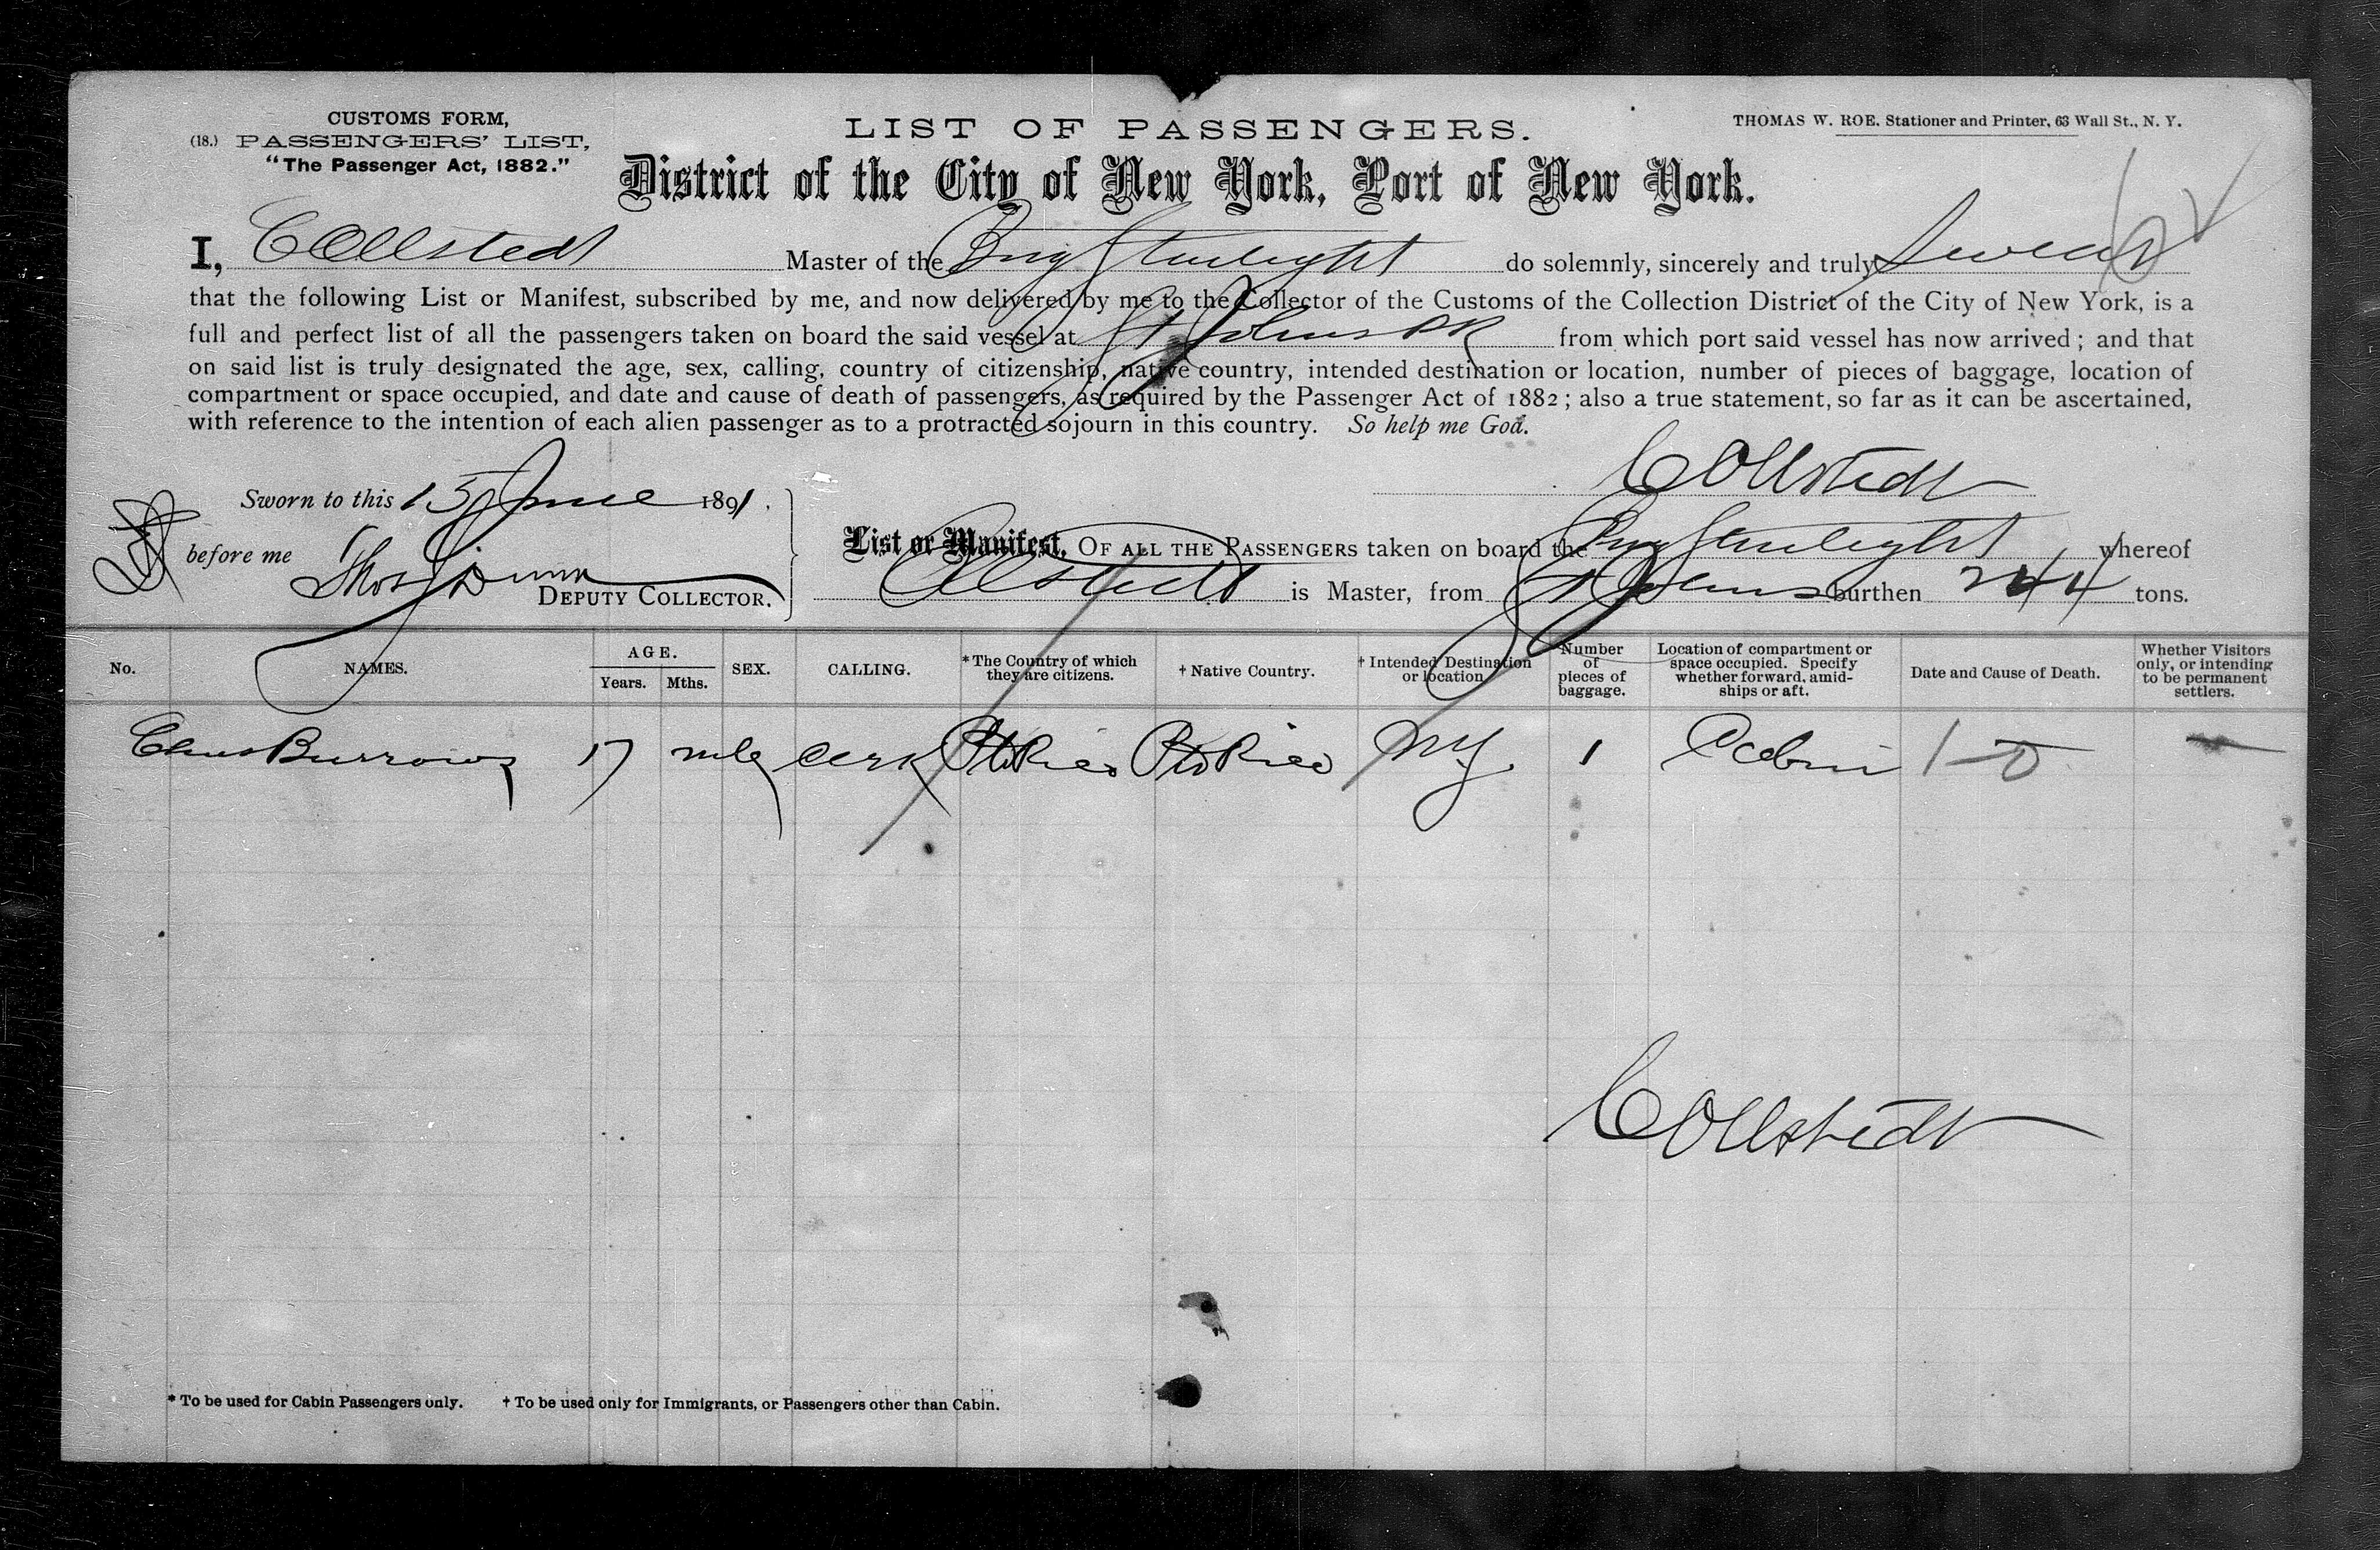 CUSTOMS FORM,
(18.) PASSENGERS' LIST,
"The Passenger Act, 1882."
LIST OF PASSENGERS.
THOMAS W. ROE, Stationer and Printer, 63 Wall St., N. Y.
District of the City of New York, Port of New York.
I, C Ollstedt Master of the Brig Starlight do solemnly, sincerely and truly Swear
that the following List or Manifest, subscribed by me, and now delivered by me to the Collector of the Customs of the Collection District of the City of New York, is a
full and perfect list of all the passengers taken on board the said vessel at St Johns PR from which port said vessel has now arrived; and that
on said list is truly designated the age, sex, calling, country of citizenship, native country, intended destination or location, number of pieces of baggage, location of
compartment or space occupied, and date and cause of death of passengers, as required by the Passenger Act of 1882; also a true statement, so far as it can be ascertained,
with reference to the intention of each alien passenger as to a protracted sojourn in this country. So help me God.
C Ollstedt
Sworn to this 15 June 1891.
before me Thos J Dunn
DEPUTY COLLECTOR.
List or Manifest, OF ALL THE PASSENGERS taken on board the Brig Starlight whereof
Ollstedt is Master, from St Johns burthen 244 tons.
No. NAMES. AGE. Years. Mths. SEX. CALLING. * The Country of which they are citizens. † Native Country. † Intended Destination or location Number of pieces of baggage. Location of compartment or space occupied. Specify whether forward, amidships or aft. Date and Cause of Death. Whether Visitors only, or intending to be permanent settlers.
Chas Burrows 17 mle Clerk Pto Rico Pto Rico NY. 1 Cabin 1-0
C Ollstedt
* To be used for Cabin Passengers only. † To be used only for Immigrants, or Passengers other than Cabin.